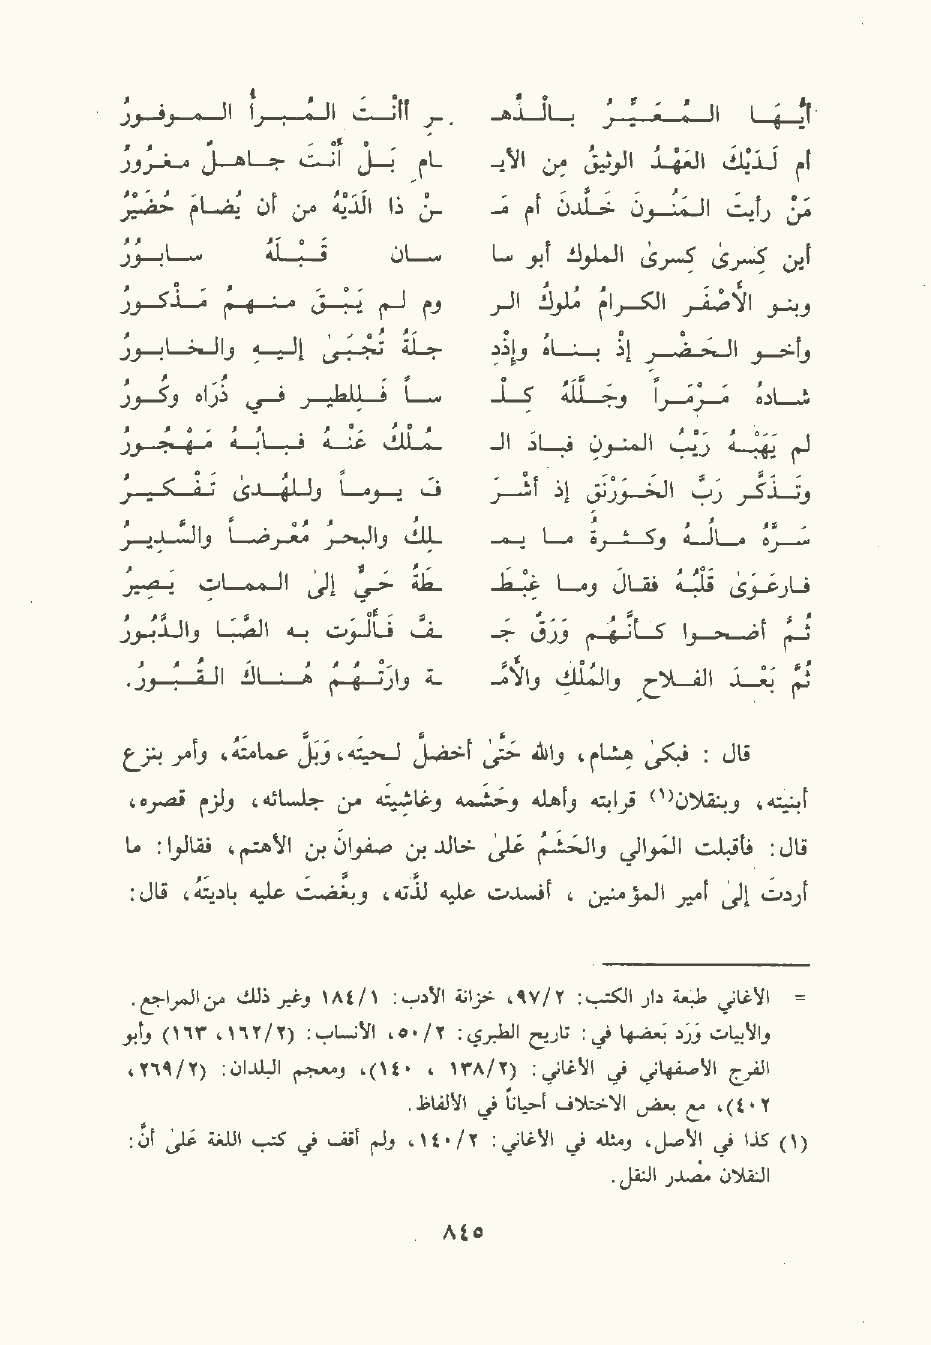 أيُّهَا المُعَيِّرُ بالدَّهـ ـرِ أأنْتَ المُبَرأُ الموفورُ
أم لَدَيْكَ العَهْدُ الوثيقُ من الأيـ ـامِ بَلْ أنْتَ جاهلٌ مغرُورُ
مَنْ رأيتَ المَنُونَ خَلَّدْنَ أم مَـ ـنْ ذا لَدَيْهِ من أن يُضامَ خَفيْرُ
أين كسرى كسرى الملوك أبو سا سان قَبْلَهُ سابُورُ
وبنو الأصْفَرِ الكرامُ ملوكُ الر وم لم يَبْقَ منهم مَذكورُ
وأخو الحَضْرِ إذْ بناهُ وإذْد جلَةُ تُجْبَىٰ إليه والخابورُ
شادهُ مَرْمَراً وجَلَّلَهُ كلْـ ـساً فللطيرِ في ذُرَاه وكُورُ
لم يَهَبْهُ رَيْبُ المنون فبادَ الـ ـمُلْكُ عَنْهُ فبابُهُ مَهْجورُ
وتَذكَّر ربَّ الخَوَرْنَقِ إذ أشْرَ فَ يوماً وللهُدىٰ تَفْكيرُ
سَرَّهُ مالُهُ وكثرةُ ما يمـ ـلِكُ والبحرُ مُعْرضاً والسَّديرُ
فارعَوىٰ قلْبُهُ فقالَ وما غبْطـ ـطَةُ حيٍّ إلى الممات يَصيرُ
ثُمَّ أضحوا كأنَّهم وَرَقٌ جَـ ـفَّ فَألْوَت به الصَّبَا والدَّبُورُ
ثُمَّ بَعْدَ الفلاحِ والمُلْكِ والأمَّـ ـة وارَتْهُمُ هُناكَ القُبُورُ.
قال : فبكى هشام، والله حتَّى أخضلَّ لحيتَه، وبَلَّ عمامتَه، وأمر بنزع
أبنيتِه، وبنقلان(١) قرابته وأهله وحَشَمه وغاشيَته من جلسائه، ولزم قصره،
قال: فأقبلت المَوالي والحَشَمُ على خالد بن صفوانَ بن الأهتم، فقالوا: ما
أردتَ إلى أمير المؤمنين ، أفسدت عليه لذَّتَه، وبغَّضتَ عليه باديتَه، قال:
= الأغاني طبعة دار الكتب: ٩٧/٢، خزانة الأدب: ١٨٤/١ وغير ذلك من المراجع.
والأبيات وَرَد بعضها في: تاريخ الطبري: ٥٠/٢، الأنساب: (١٦٢/٢، ١٦٣) وأبو
الفرج الأصفهاني في الأغاني: (١٣٨/٢ ، ١٤٠)، ومعجم البلدان: (٢٦٩/٢،
٤٠٢)، مع بعض الاختلاف أحياناً في الألفاظ.
(١) كذا في الأصل، ومثله في الأغاني: ١٤٠/٢، ولم أقف في كتب اللغة على أنَّ:
النقلان مصدر النقل.
٨٤٥